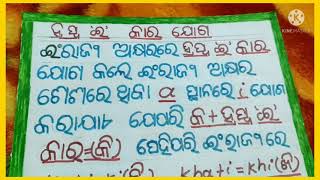 ହ୍ରସ୍ୱ 'ଇ' କାର ଯୋଗ
KINEMASTER
ଇଂରାଜୀ ଅକ୍ଷରରେ ହ୍ରସ୍ୱ 'ଇ' କାର
ଯୋଗ କଲେ ଇଂରାଜୀ ଅକ୍ଷର
ଶେଷରେ ଥିବା a ସ୍ଥାନରେ i ଯୋଗ
କରାଯାଏ ଯେପରି କ + ହ୍ରସ୍ୱ 'ଇ'
କାର = (କି) ସେହିପରି ଇଂରାଜୀରେ
kha + i = khi (ଖି)